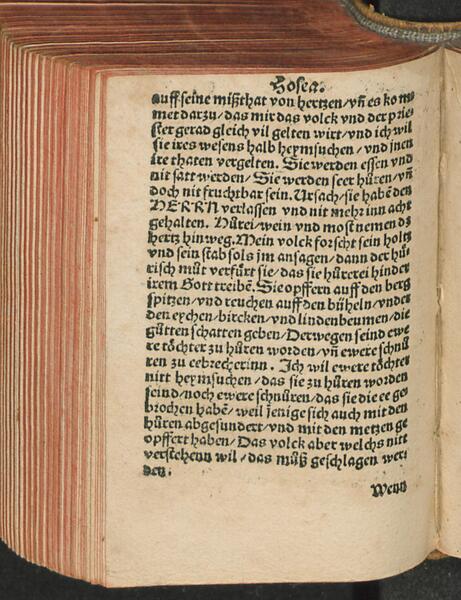 Hosea.
auff seine mißthat von hertzen/vn̄ es kom
met darzu/das mir das volck vnd der prie⸗
ster gerad gleich vil gelten wirt/vnd ich wil
sie ires wesens halb heymsuchen/vnd jnen
ire thaten vergelten. Sie werden essen vnd
nit satt werden/Sie werden seer hůren/vn̄
doch nit fruchtbar sein. Ursach/sie habē den
HERRN verlassen vnd nit mehr inn acht
gehalten. Hůrei/wein vnd most nemen dz
hertz hinweg. Mein volck forscht sein holtz
vnd sein stab sols jm ansagen/dann der hů
risch můt verfůrt sie/das sie hůrerei hinder
irem Gott treibē. Sie opffern auff den berg
spitzen/vnd reuchen auff den bůheln/vnder
den eychen/bircken/vnd lindenbeumen/die
gůtten schatten geben/Derwegen seind ewe
re tőchter zu hůren worden/vn̄ ewere schnů
ren zu eebrecherinn. Ich wil ewere tőchter
nitt heymsuchen/das sie zu hůren worden
seind/noch ewere schnůren/das sie die ee ge⸗
brochen habē/weil jenige sich auch mit den
hůren abgesundert/vnd mit den metzen ge
opffert haben/Das volck aber welchs nitt
verstehenn wil/das můß geschlagen wer⸗
den.
Wenn